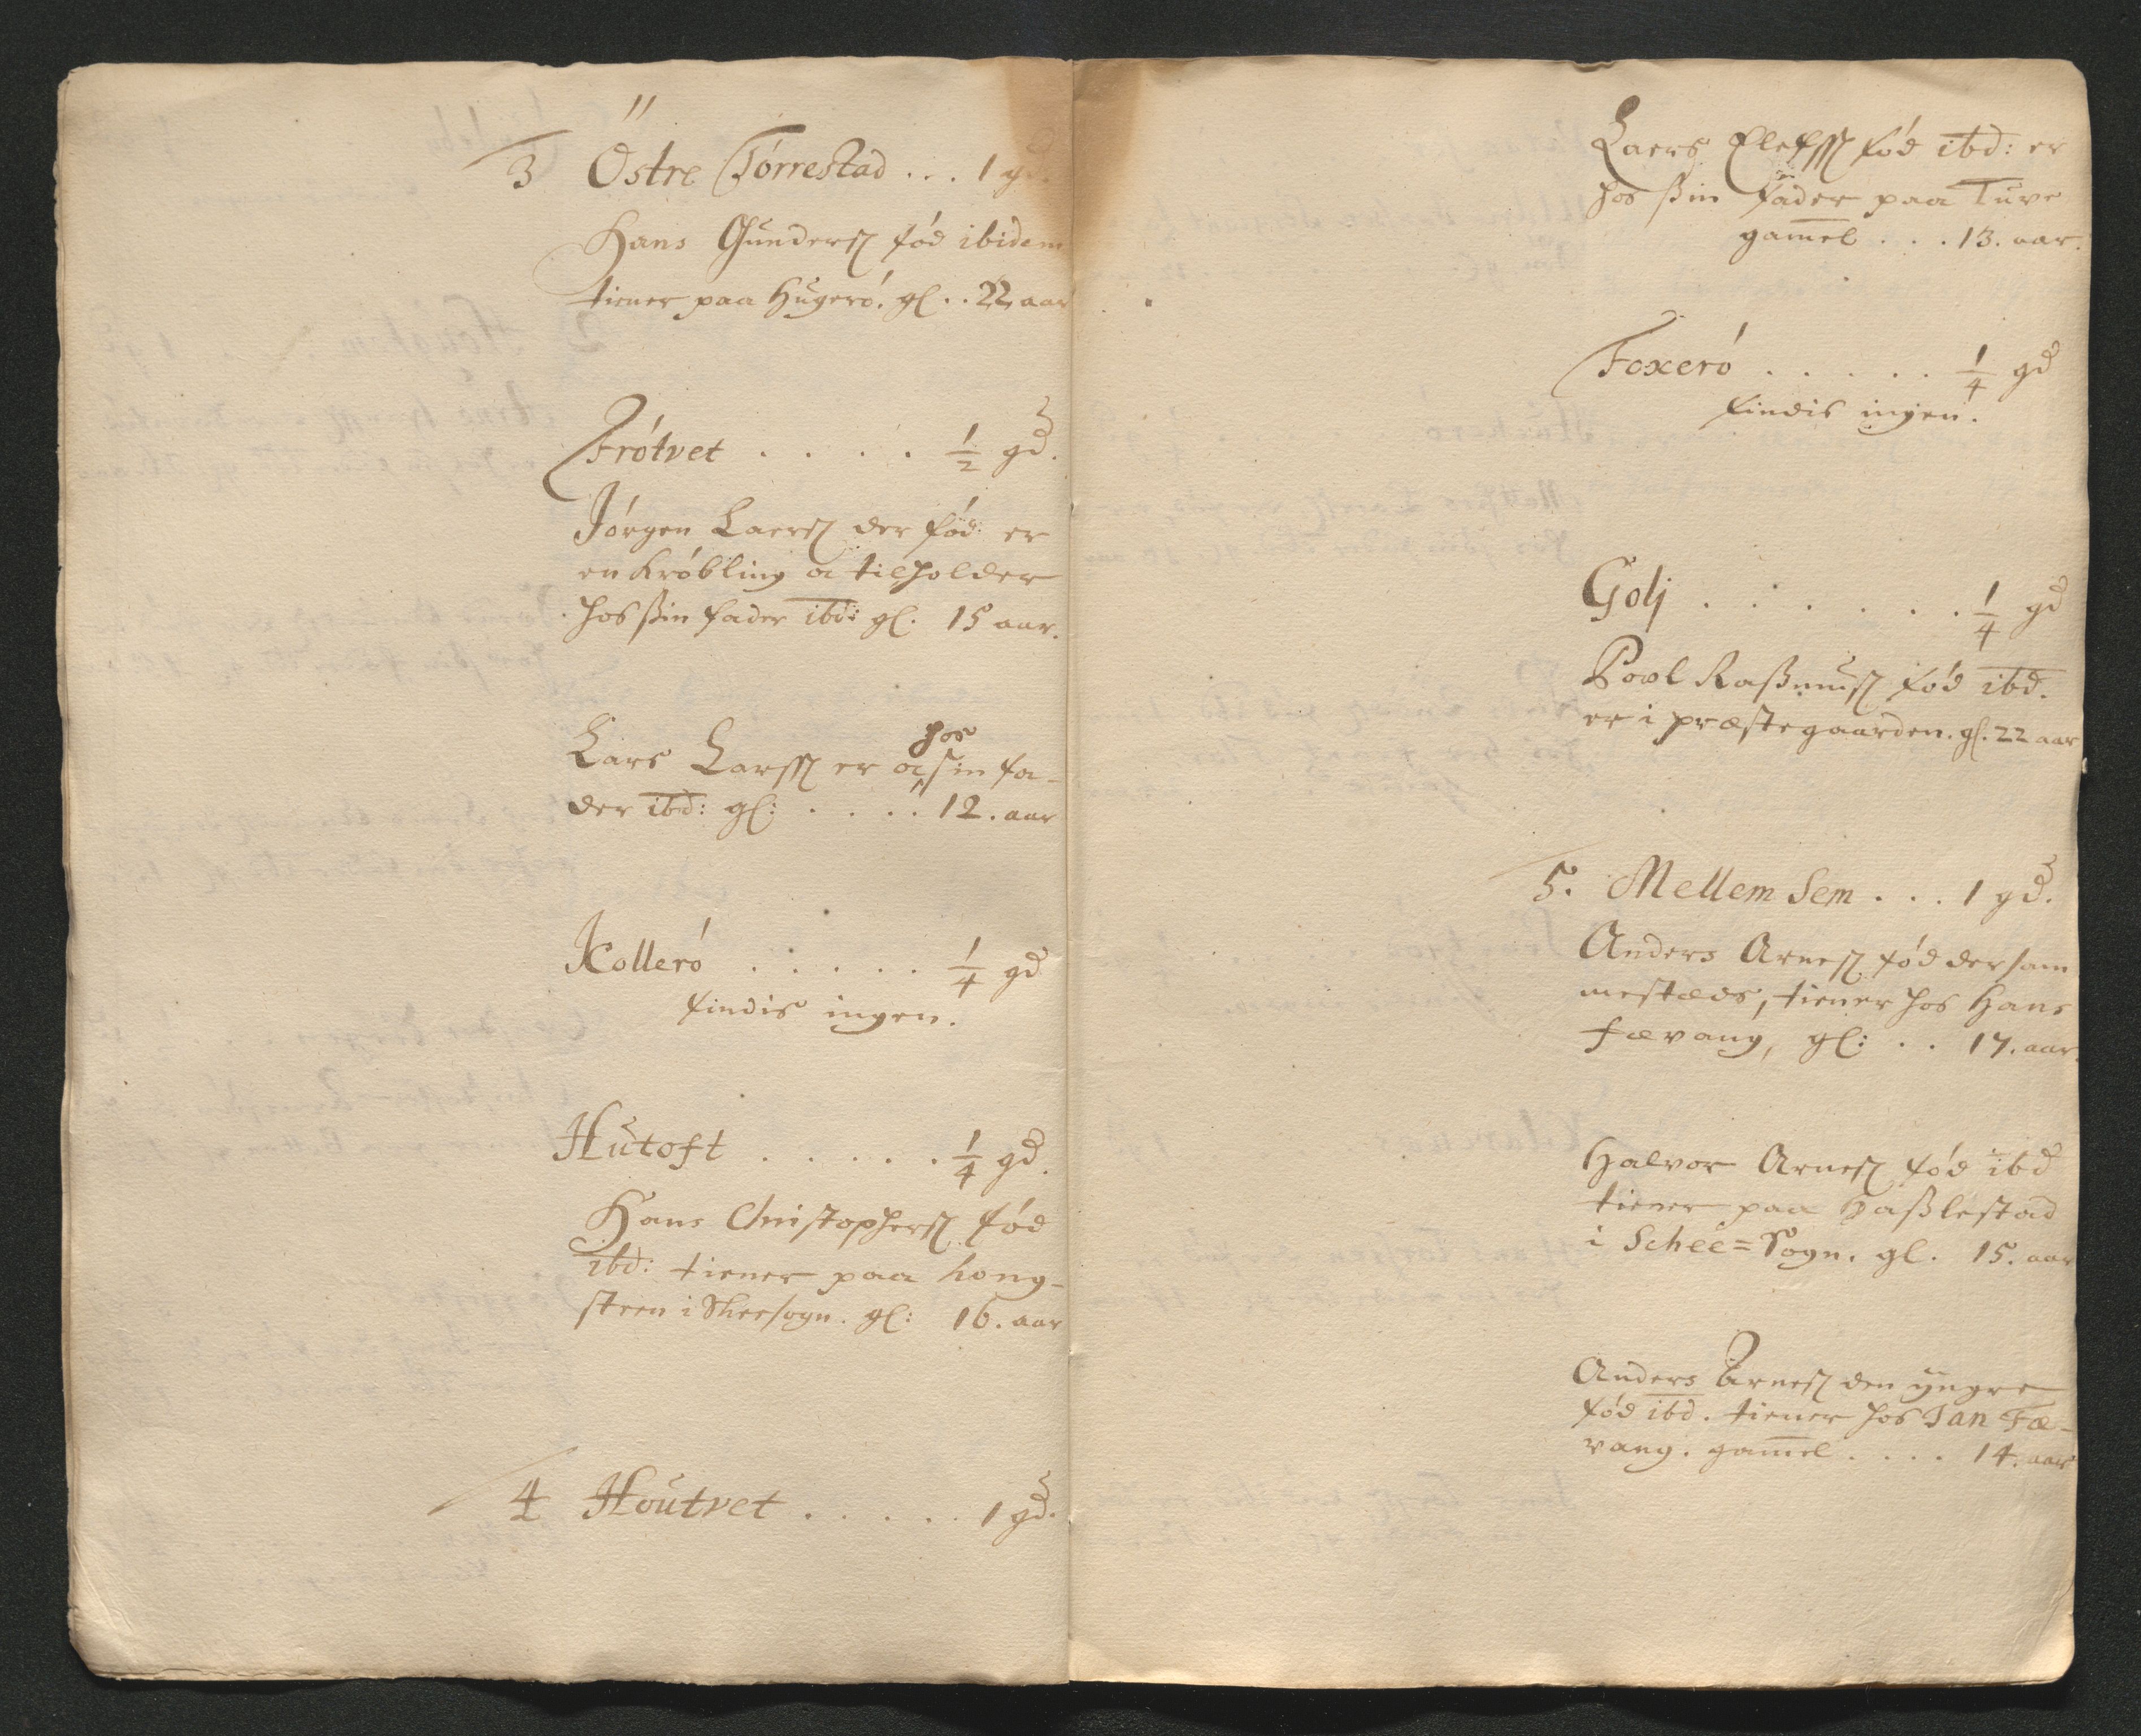 3 Östre Tørrestad . . . 1 gd.
Hans Gunders: fød ibidem
tiener paa Hugerø. gl . . 22 aar
Frøtvet . . . . 1/2 gd.
Jørgen Laers: der fød: er
en Krøbling oc tilholder
hos ßin fader ibd: gl. 15 aar.
Lars Larss: er oc hos sin fa-
der ibd: gl: . . . . 12. aar
Kollerø . . . . . 1/4 gd
findis ingen.
Hutoft . . . . . 1/4 gd.
Hans Christophers: fød
ibd: tiener paa hong-
steen i Skeesogn. gl: 16. aar
4 Houtvet . . . . . 1 gd.
Laers Elefss: fød ibd: er
hos ßin fader paa Tuve
gam̅el . . . 13. aar.
Foxerø . . . . . 1/4 gd
findis ingen.
Golj . . . . . . 1/4 gd
Powl Raßmus: fød ibd.
er i præstegaarden. gl. 22 aar
5. Mellem Sem . . . 1 gd.
Anders Arnes: fød dersam
mestæds, tiener hos Hans
Fævang, gl: . . 17. aar.
Halvor Arnes: fød ibd
tiener paa Haßlestad
i Schee=Sogn. gl. 15. aar
Anders Arnes: den yngre
fød ibd. tiener hos Jan Fæ-
vang. gam̅el . . . . 14. aar